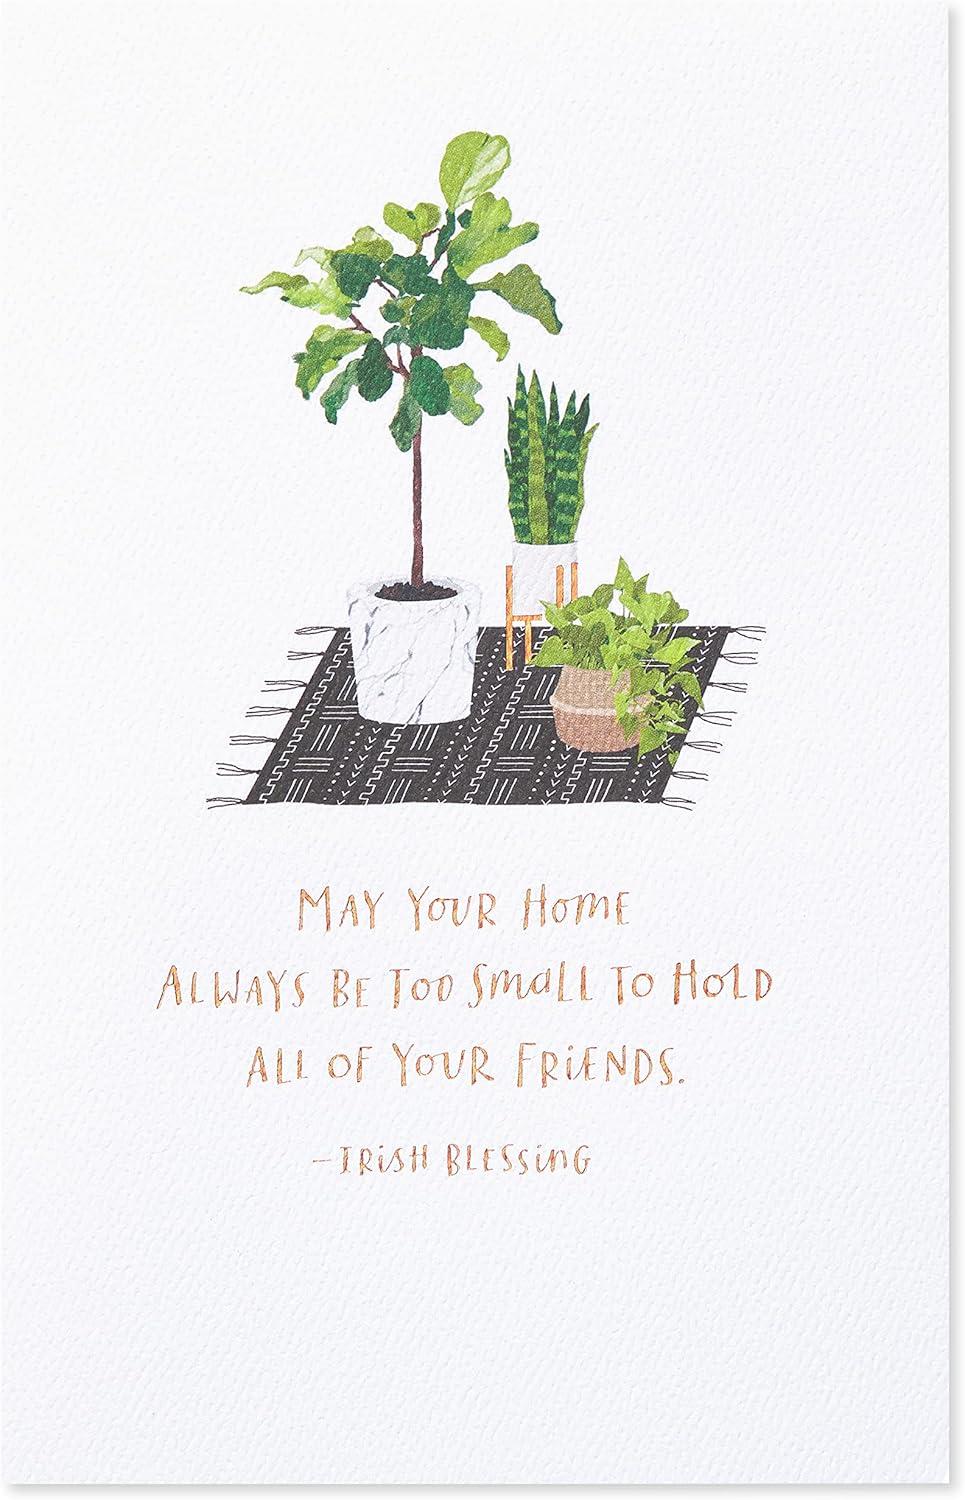 MAY YOUR HOME
ALWAYS BE TOO SMALL TO HOLD
ALL OF YOUR FRIENDS.
–IRISH BLESSING